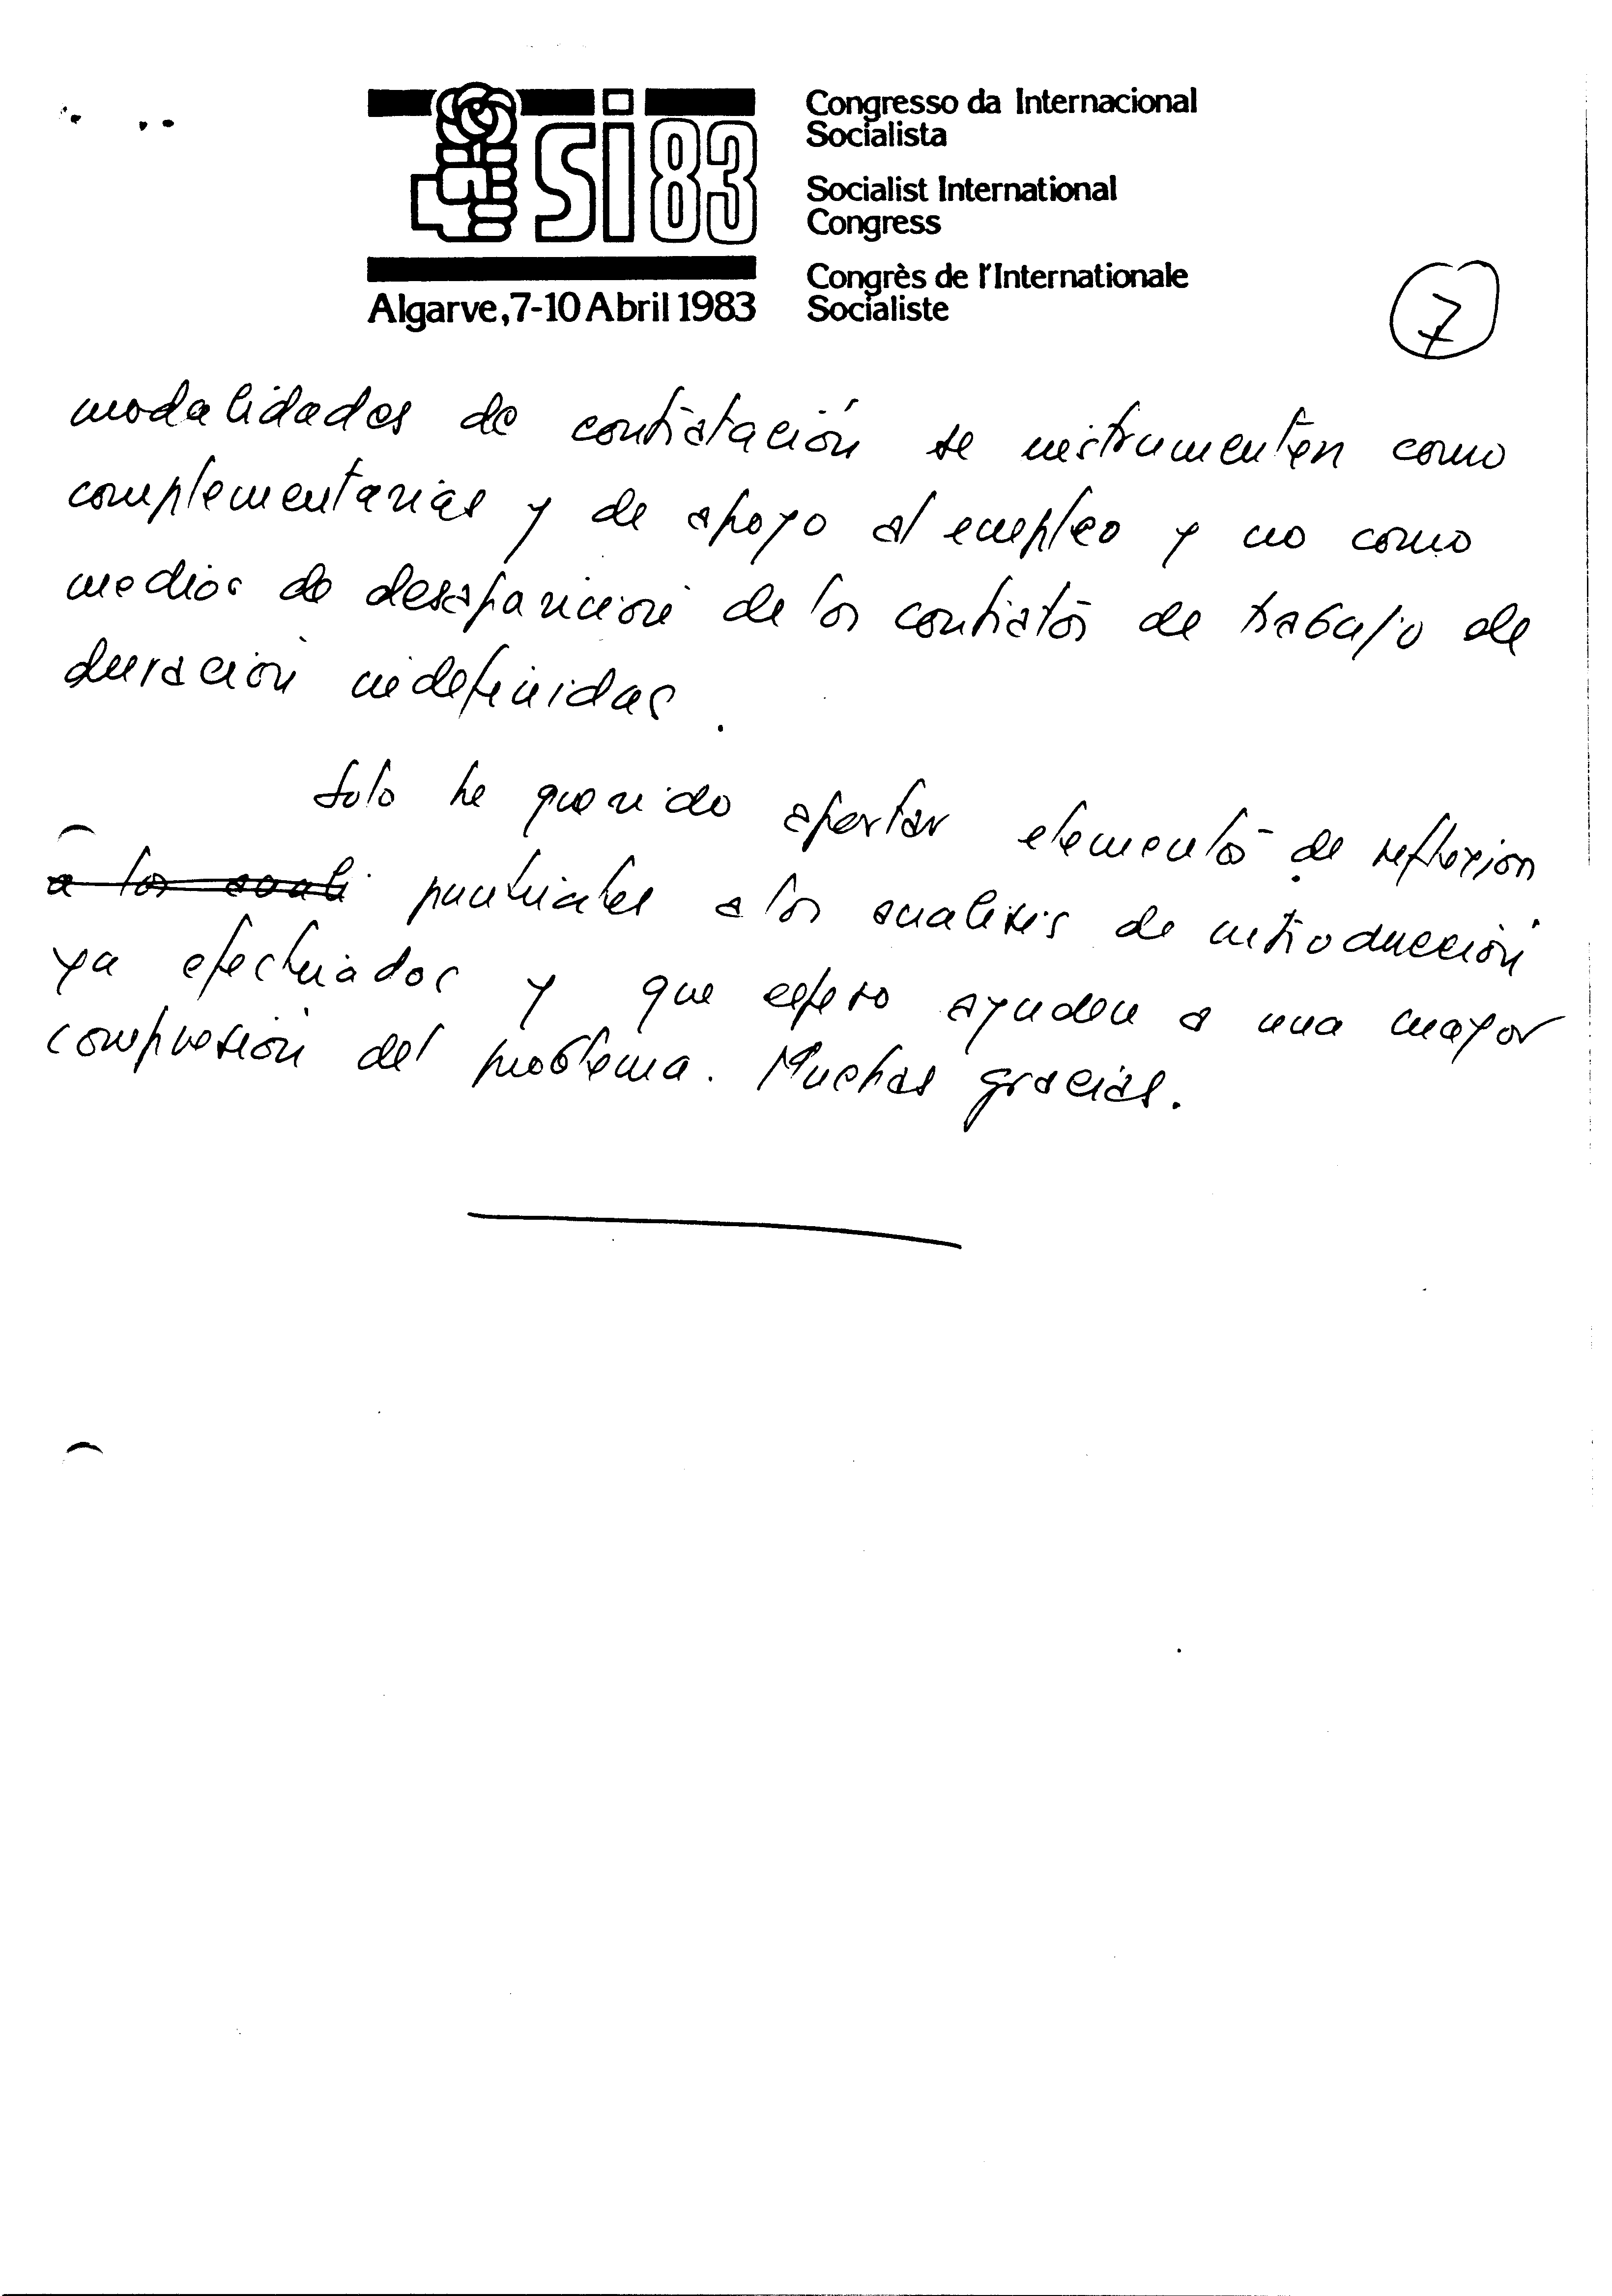 SI83
Algarve, 7-10 Abril 1983
Congresso da Internacional
Socialista
Socialist International
Congress
Congrès de l'Internationale
Socialiste
7
modalidades de contratación se instrumenten como
complementarias y de apoyo al empleo y no como
medios de desaparición de los contratos de trabajo de
duración indefinidas.
Solo he querido aportar elementos de reflexión
a los anali puntuales a los analisis de introducción
ya efectuados y que espero ayuden a una mayor
compresión del problema. Muchas gracias.